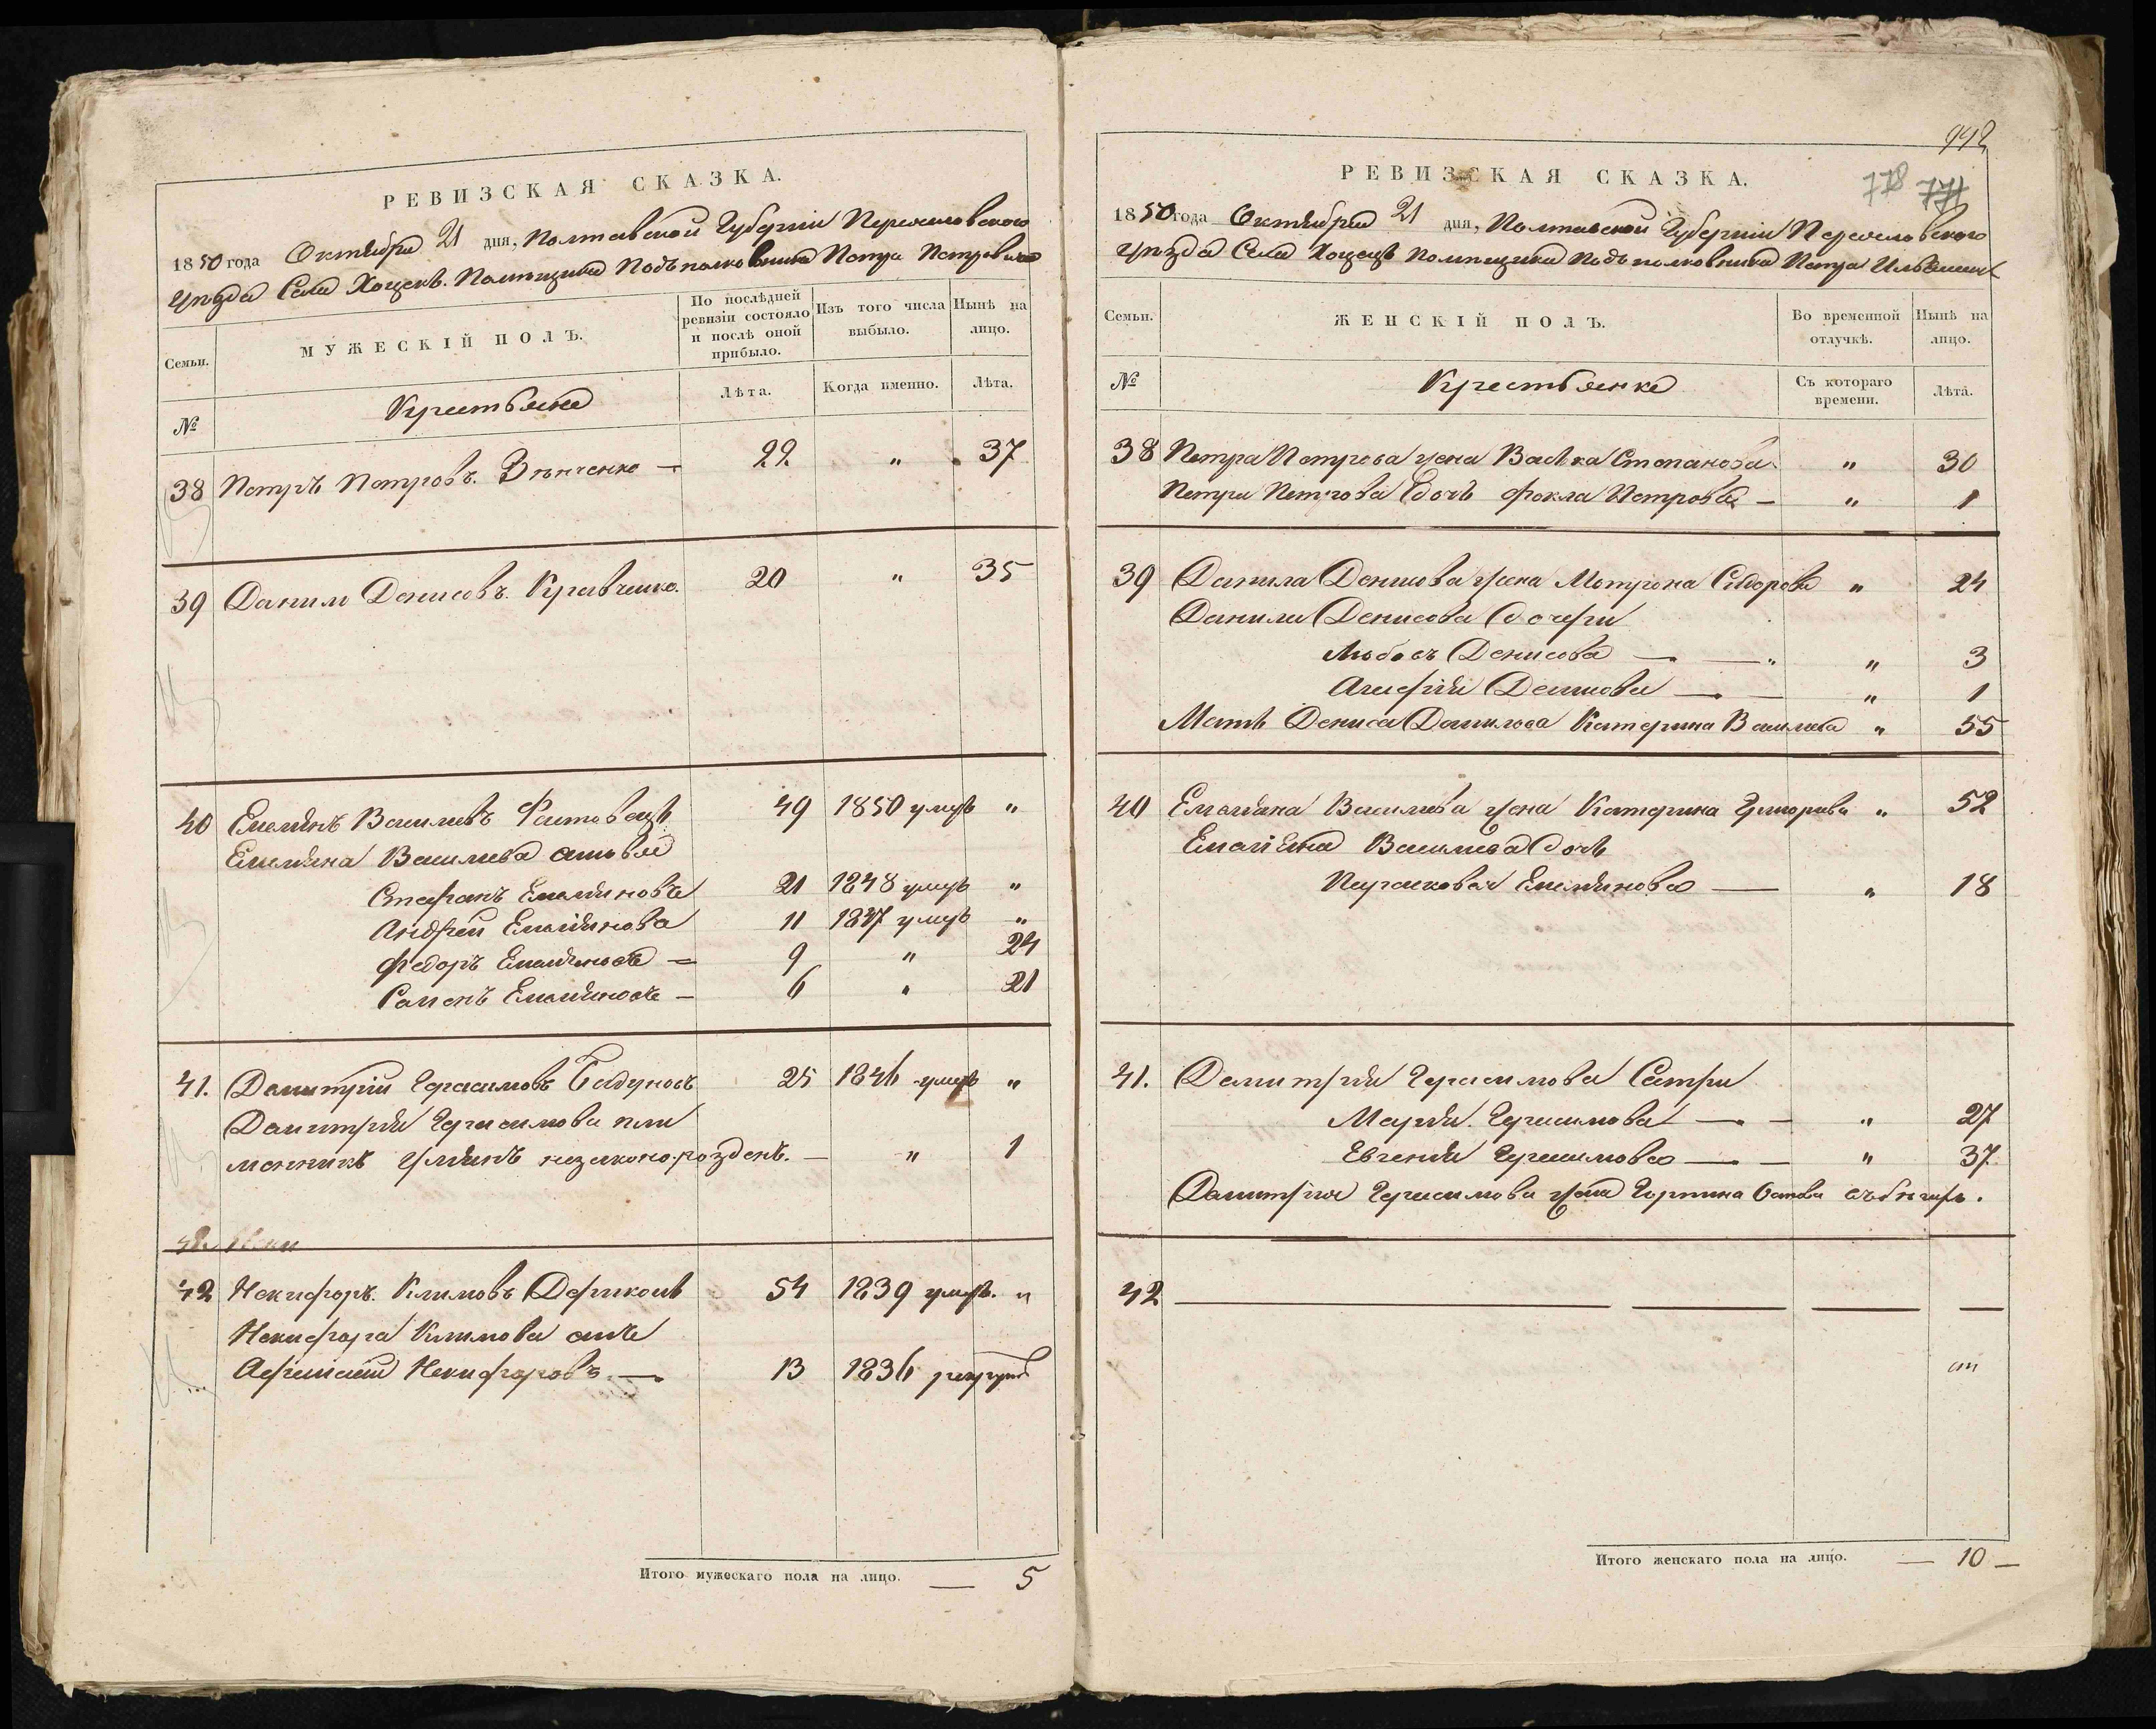 РЕВИЗСКАЯ СКАЗКА.
1850 года Октября 21 дня, Полтавской Губернии Переяславского
Уезда Села Хоцекъ. Помещика Подъполковника Петра
Семьи.
МУЖЕСКІЙ ПОЛЪ.
По послѣдней ревизіи состояло и послѣ оной прибыло.
Изъ того числа выбыло.
Нынѣ на лицо.
№
Крестьяне
Лѣта.
Когда именно.
Лѣта.
38 Петръ Петровъ. — 22 " 37
39 Данило Денисовъ. Кравченко. 20 " 35
40 Емелянъ Василевъ 49 1850 умеръ "
Емеляна Василева
Стефанъ Емеляновъ 21 1848 умеръ "
Андрей Емелянова 11 1837 умеръ "
Федоръ Емеляновъ — 9 " 24
Саменъ Емеляновъ — 6 " 21
41. Дамитрій Герасимовъ 25 1846 умеръ "
Дамитрія Герасимова пле
менникъ Улянъ незаконорозденъ. — " 1
42 Некифоръ. Климовъ 54 1839 умеръ. "
Некифора Климова
Афанасий Некифоровъ. — 13 1836
Итого мужескаго пола на лицо. — 5
942
778 771
РЕВИЗСКАЯ СКАЗКА.
1850 года Октября 21 дня, Полтавской Губерніи Переяславского
Уезда Села Хоцецъ помпещика подъполковника Петра
Семьи.
ЖЕНСКІЙ ПОЛЪ.
Во временной отлучкѣ.
Нынѣ на лицо.
№
Крестьянке
Съ котораго времени.
Лѣта.
38 Петра Петрова жена Васька Степанова " 30
Петра Петрова дочь Фекла Петрова — " 1
39 Данила Денисова жена Мотрона Сидорова " 24
Данила Денисова дочери
Любовъ Денисова — — " 3
Агафія Денисова — — " 1
Мать Дениса Данилова Катерина Василева " 55
40 Емеляна Василева жена Катерина " 52
Емеляна Василева дочь
Парасковія Емелянова — " 18
41. Дамитрія Герасимова Сестри
Марія. Герасимова — — " 27
Евгенія Герасимова — — " 37
Дамитрія Герасимова жена
42 — — — —
Итого женскаго пола на лицо. — 10 —